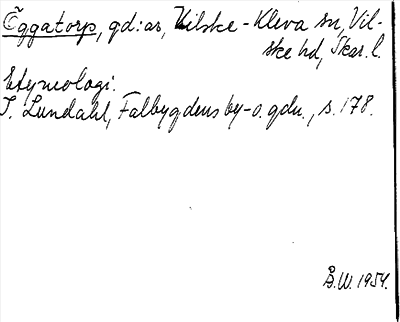 Öggatorp, gd:ar, Vilske-Kleva sn, Vil-
ske hd, Skar. l.
Etymologi.
I. Lundahl, Falbygdens by-o. gdn., s. 178.
Å.W. 1954.